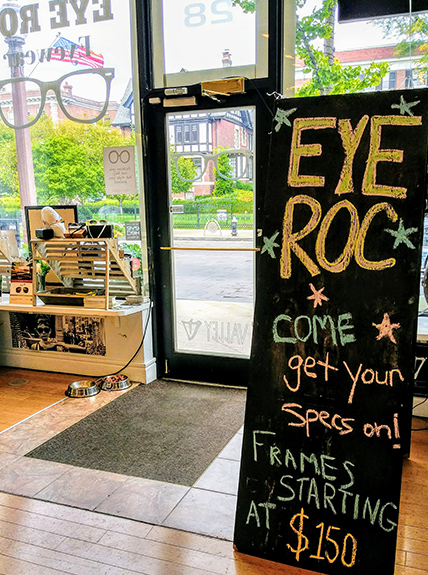 EYE RO
Eyewear
28
VALLEY
EYE
ROC
COME
get your
specs on!
FRAMES
STARTING
AT $150